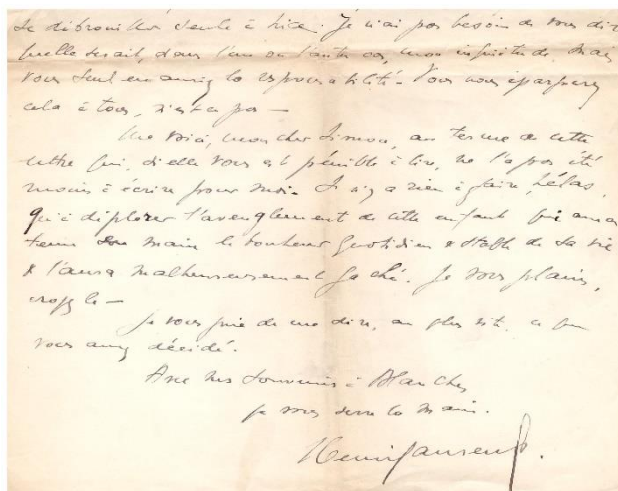 se débrouiller seule à Nice. Je n'ai pas besoin de vous dire
quelle serait, dans l'un ou l'autre cas, mon inquiétude. Mais
vous seul en auriez la responsabilité. Vous nous épargnerez
cela à tous, n'est-ce pas —
Me voici, mon cher Simon, au terme de cette
lettre qui, si elle vous est pénible à lire, ne l'a pas été
moins à écrire pour moi. Il n'y a rien à faire, hélas,
qu'à déplorer l'aveuglement de cette enfant qui aura
tenu dans main le bonheur quotidien & stable de sa vie
& l'aura malheureusement gâché. Je vous plains,
croyez le —
Je vous prie de me dire, au plus vite, ce que
vous aurez décidé.
Avec mes souvenirs à Blanche,
je vous serre la main.